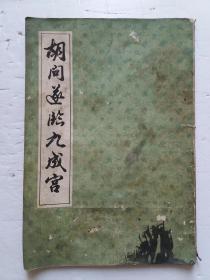 胡问遂临九成宫